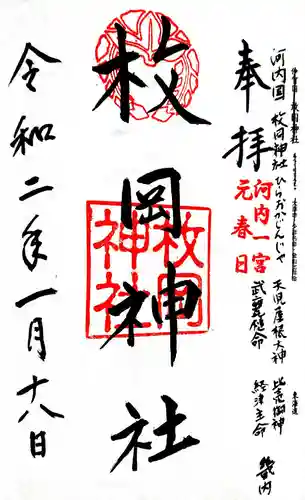 河内国 枚岡神社 ひらおかじんじゃ 天児屋根大神 比売御神
武甕槌命 経津主命
畿内
奉拝
河内一宮
元春日
枚岡神社
枚岡神社
令和二年一月十八日